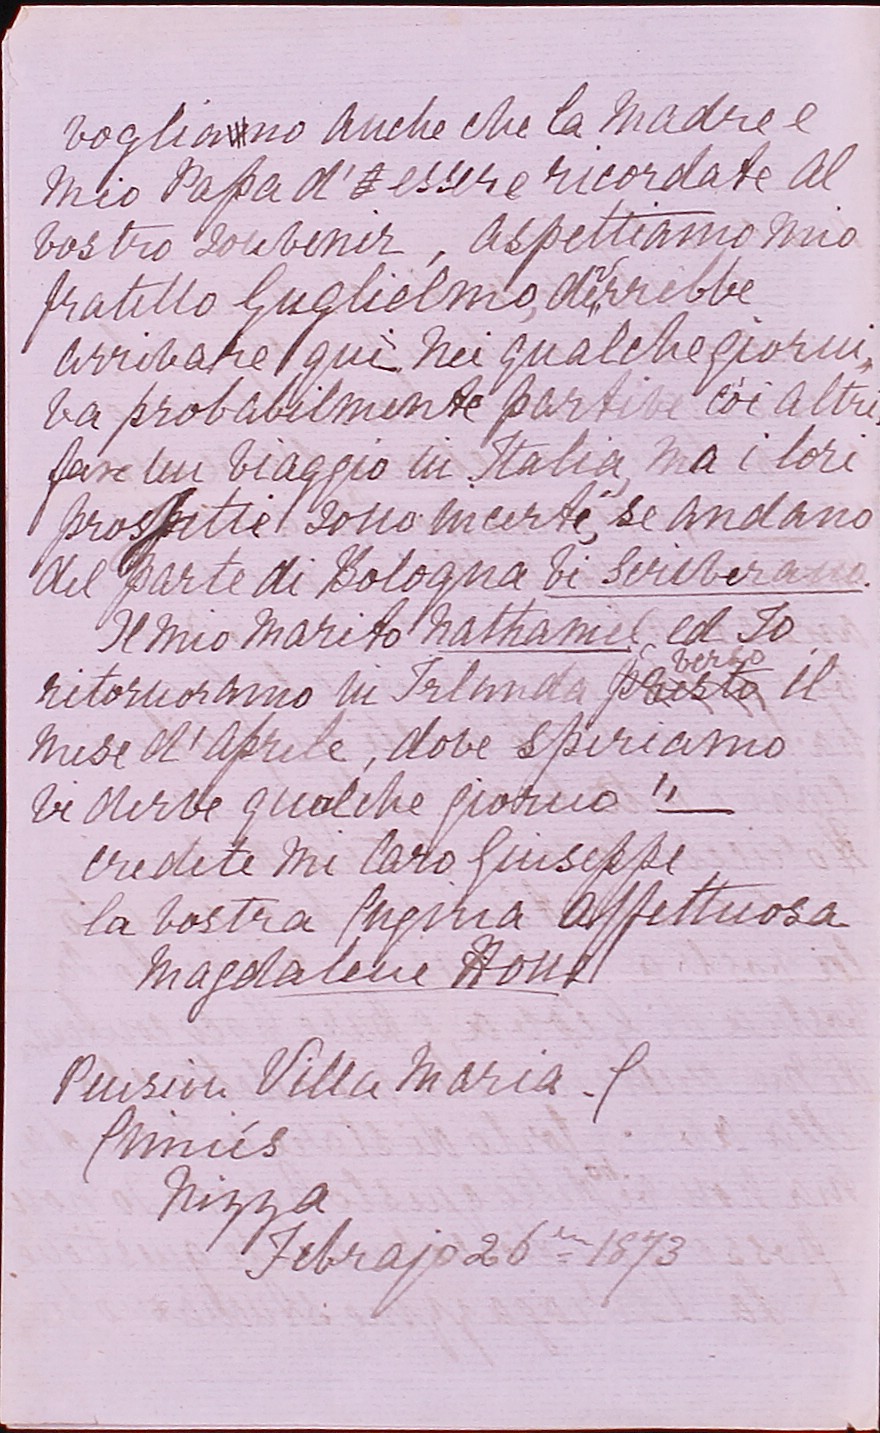 vogliano anche che la Madre e
mio Papa d' essere ricordate al
vostro souvenir, aspettiamo mio
fratello Guglielmo, derrebbe
arrivare qui nei qualche giorni,
va probabilmente partire coi altri,
fare un viaggio in Italia, ma i lori
prospettie sono incerte, se andano
del parte di Bologna vi scriverano.
Il mio marito Nathaniel ed Io
ritornoramo in Irlanda verso il
mese d'Aprile, dove speriamo
vi derve qualche giorno "
credete mi Caro Giuseppe
la vostra Cugina affettuosa
Magdalene Hone
Pension Villa Maria -
Cimiés
Nizza
Febrajo 26 1873